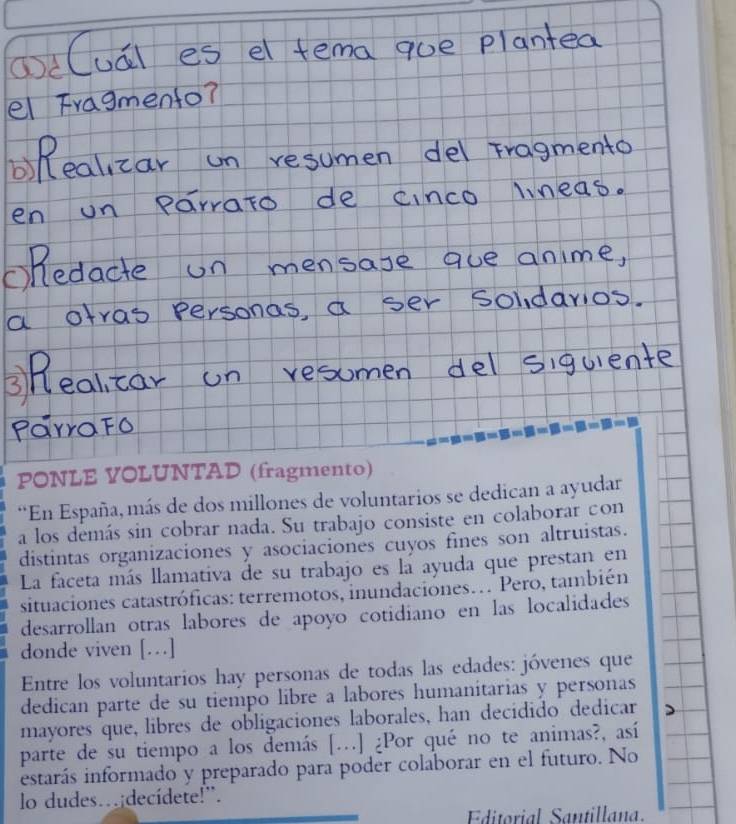 a) ¿Cuál es el tema que plantea
el Fragmento?
b) Realizar un resumen del Fragmento
en un Párrafo de cinco líneas.
c) Redacte un mensaje que anime,
a otras personas, a ser solidarios.
3) Realizar un resumen del siguiente
Párrafo
PONLE VOLUNTAD (fragmento)
“En España, más de dos millones de voluntarios se dedican a ayudar
a los demás sin cobrar nada. Su trabajo consiste en colaborar con
distintas organizaciones y asociaciones cuyos fines son altruistas.
La faceta más llamativa de su trabajo es la ayuda que prestan en
situaciones catastróficas: terremotos, inundaciones... Pero, también
desarrollan otras labores de apoyo cotidiano en las localidades
donde viven [...]
Entre los voluntarios hay personas de todas las edades: jóvenes que
dedican parte de su tiempo libre a labores humanitarias y personas
mayores que, libres de obligaciones laborales, han decidido dedicar
parte de su tiempo a los demás [...] ¿Por qué no te animas?, así
estarás informado y preparado para poder colaborar en el futuro. No
lo dudes...¡decídete!”.
Editorial Santillana.